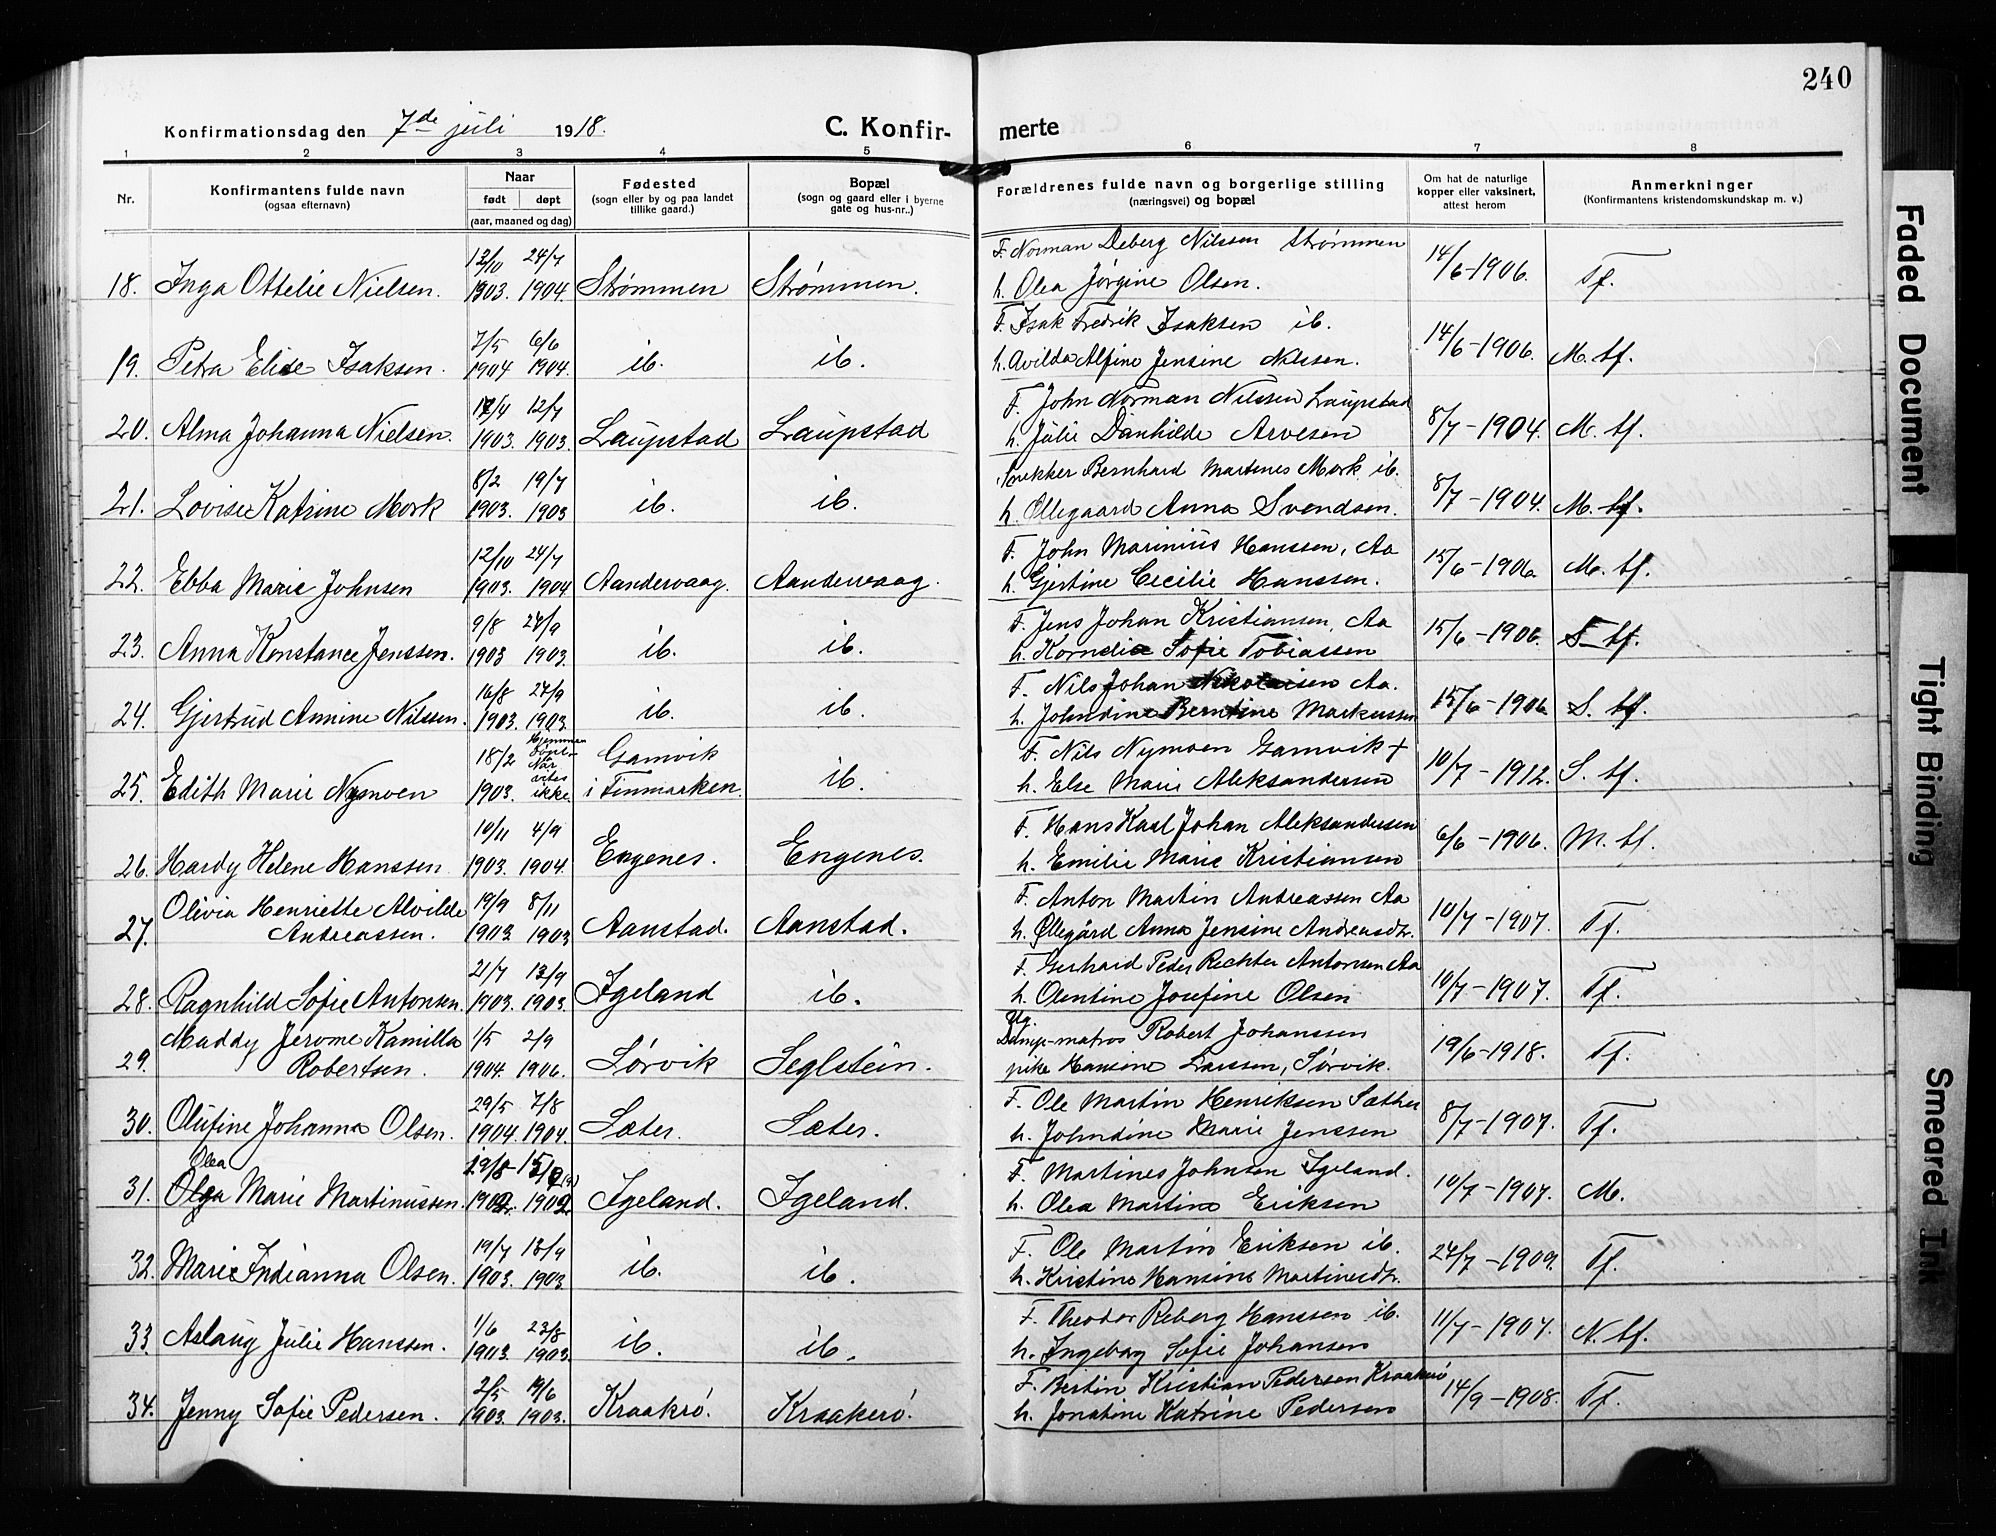 240
Konfirmationsdag den 7de juli 1918.
C. Konfirmerte
1 2 3 4 5 6 7 8
Nr.
Konfirmantens fulde navn
(ogsaa efternavn)
Naar
født døpt
(aar, maaned og dag)
Fødested
(sogn eller by og paa landet
tillike gaard.)
Bopæl
(sogn og gaard eller i byerne
gate og hus-nr..)
Forældrenes fulde navn og borgerlige stilling
(næringsvei) og bopæl
Om hat de naturlige
kopper eller vaksinert,
attest herom
Anmerkninger
(Konfirmantens kristendomskundskap m. v.)
F. Norman Deberg Nilssen Strømmen
12/10 24/7
18. Inga Ottelie Nielsen. 1903. 1904. Strømmen Strømmen. h. Olea Jørgine Olsen. 14/6-1906. Tf.
7/5 6/6 F. Isak Fredrik Isaksen ib.
19. Petra Elise Isaksen. 1904 1904. ib. ib. h. Avilda Alfine Jensine Nilssen. 14/6-1906. M. tf.
12/4 12/7 F. John Norman Nilssen Laupstad
20. Alma Johanna Nielsen. 1903. 1903. Laupstad Laupstad h. Julie Danhilde Arvesen 8/7-1904. M. tf.
8/2 19/7 Snekker Bernhard Martenes Mork ib.
21. Lovise Katrine Mork 1903. 1903 ib. ib. h. Ollegaard Anna Svendsen. 8/7-1904. M. tf.
12/10 24/7 F. John Marinius Hanssen, Aa
22. Ebba Marie Johnsen 1903. 1904 Aandervaag. Aandervaag. h. Gjertine Cecilie Hanssen. 15/6-1906. M. tf.
9/8 24/9 F. Jens Johan Kristiansen, Aa
23. Anna Konstance Jenssen. 1903 1903. ib. ib. h. Kornelia Sofie Tobiassen 15/6-1906. S. tf.
16/8 24/9 F. Nils Johan Nikolaisen Aa.
24. Gjertrud Annine Nilssen. 1903. 1903. ib. ib. h. Johndine Berntine Markussen 15/6-1906. S. tf.
18/2 Hjemmedøpt Naar vites ikke. Gamvik F. Nils Nymoen Gamvik +
25. Edith Marie Nymoen 1903. i Finmarken. ib. h. Else Marie Aleksandersen 10/7-1912. S. tf.
10/11 4/9 F. Hans Karl Johan Aleksandersen
26. Hardy Helene Hanssen 1903. 1904. Engenes. Engenes. h. Emilie Marie Kristiansen 6/6-1906. M. tf.
Olivia Henriette Alvilde 19/9 8/11 F. Anton Martin Andreassen Aa
27. Andreassen. 1903 1903 Aanstad. Aanstad. h. Øllegård Anna Jensine Andreasdtr. 10/7-1907. Tf.
21/7 13/9 F. Gerhard Peder Rechter Antonsen Aa
28. Ragnhild Sofie Antonsen 1903. 1903. Igeland ib. h. Olentine Josefine Olsen 10/7-1907. Tf.
Maddy Jerome Kamilla 1/5 2/9 Ug. Damp-matros Robert Johanssen
29. Robertsen. 1904. 1906. Sørvik Seglstein. pike Hansine Larssen, Sørvik. 19/6-1918. Tf.
29/5 7/8 F. Ole Martin Henriksen Sæther
30. Olufine Johanna Olsen. 1904. 1904. Sæter. Sæter. h. Johndine Marie Jenssen 8/7-1907. Tf.
Olea 29/8 F. Martines Johnsen Igeland.
31. Olga Marie Martinussen. 1902. 1902 Igeland. Igeland. h. Olea Martina Eriksen 10/7-1907. M.
19/7 13/9 F. Ole Martin Eriksen ib.
32. Marie Indianna Olsen. 1903. 1903 ib. ib. h. Kristine Hansine Martinesdtr. 24/7-1909. Tf.
1/6 23/8 F. Theodor Reberg Hanssen ib.
33. Aslaug Julie Hanssen. 1903. 1903. ib. ib. h. Ingeborg Sofie Johansen 11/7-1907. N. tf.
2/5 19/6 F. Bertin Kristian Pedersen Kraakerø
34. Jenny Sofie Pedersen. 1903. 1903. Kraakrø. Kraakerø. h. Jonatine Katrine Pedersen 14/9-1908. Tf.
Faded Document
Tight Binding
Smeared Ink